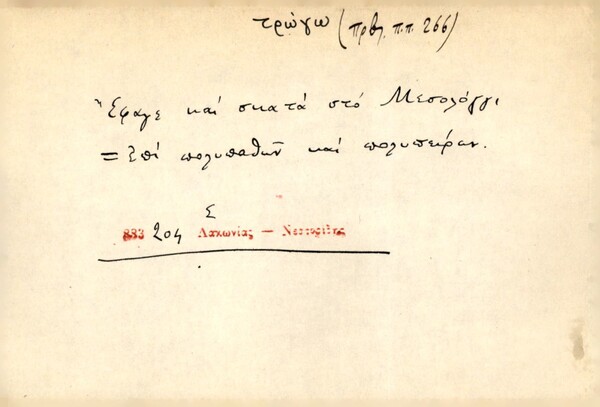 τρώγω (πρβλ. π.π. 266)
Ἔφαγε καί σκατά στό Μεσολόγγι
= Ἐπί πολυπαθῶν καί πολυπείρων.
Σ
883 204 Λακωνίας —